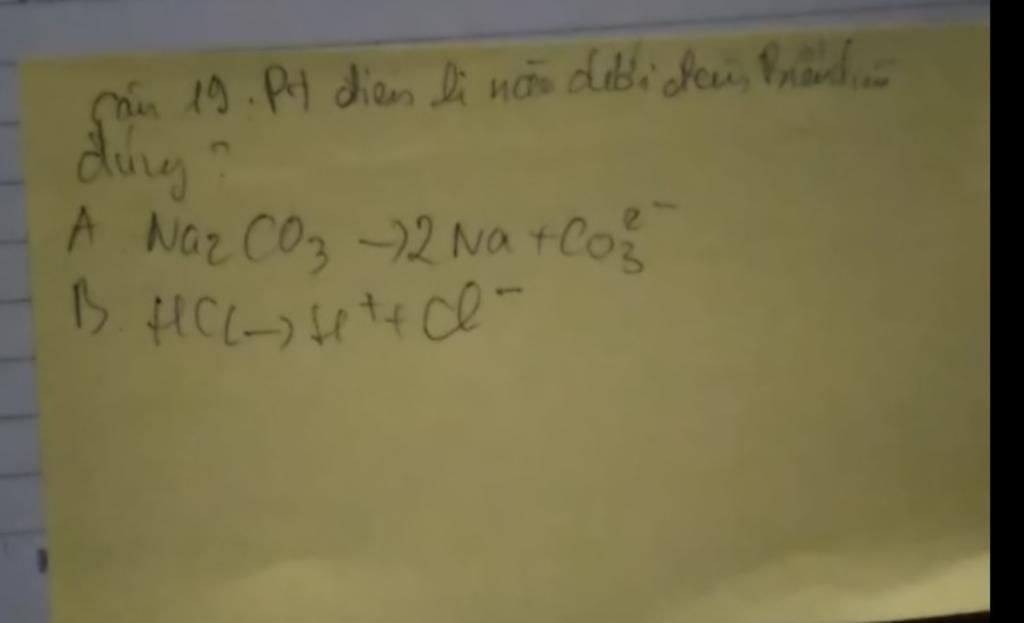 Câu 19. Pt điện li nào dưới đây
đúng?
A. Na2CO3 → 2Na + CO3 2-
B. HCl → H+ + Cl-